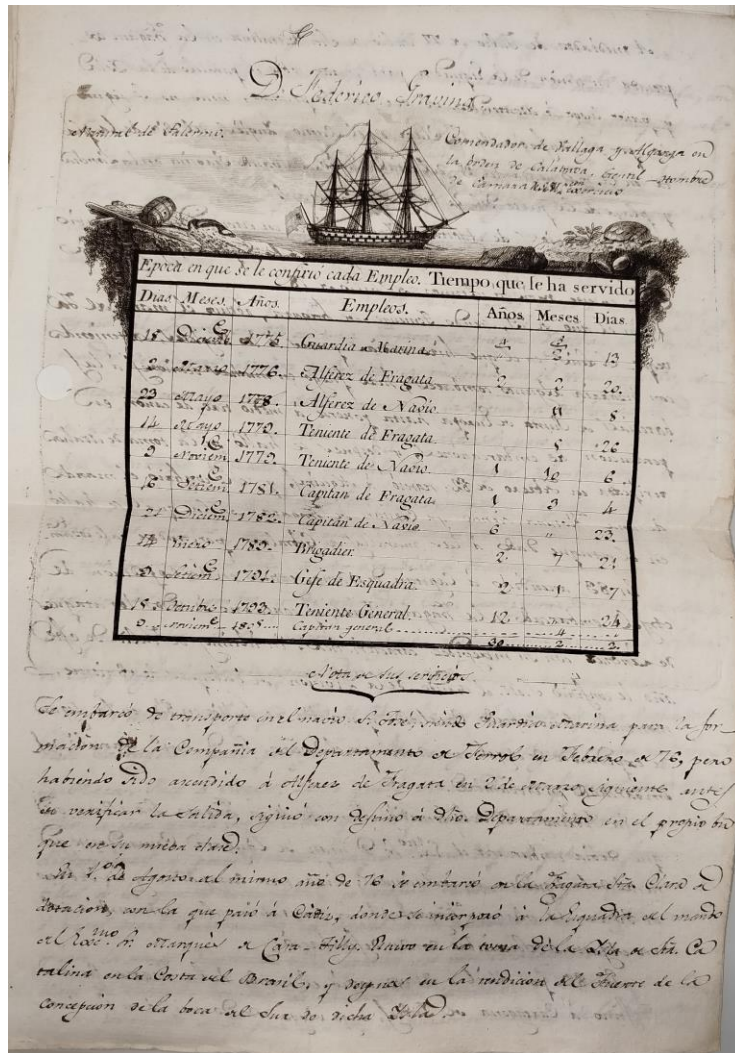 D. Federico Gravina
Natural de Palermo.
Comendador de Vallaga y Algarga en
la orden de Calatrava, Gentil Hombre
de Camara de S.M. con exercicio
Epoca en que se le confirió cada Empleo. Tiempo que le ha servido
Dias Meses. Años. Empleos. Años Meses Dias
18 Diciem.e 1775. Guardia Marina
2 Marzo 1776. Alferez de Fragata 2 2 20
23 Mayo 1778. Alferez de Navio 11
14 Mayo 1779. Teniente de Fragata 26
9 Noviem. 1779. Teniente de Navio. 1 10 6
Setiem. 1781. Capitan de Fragata 1 3 4
21 Diciem. 1782. Capitan de Navio. 6 " 23.
14 Enero 1789. Brigadier. 2 7 21
Setiem. 1791. Gefe de Esquadra. 2 1
18 Octubre 1793. Teniente General 12 24
9 Noviem.e Capitan general 4
30 2
Nota de sus servicios.
Se embarcó de transporte en el navio S. José, siendo Guardia Marina para la for
macion de la Compañia del Departamento de Ferrol en Febrero de 76, pero
habiendo sido ascendido á Alferez de Fragata en 2 de Marzo siguiente antes
de verificar la salida, siguió con destino á dho. Departamento en el propio bu
que en su nueva clase.
En 1.º de Agosto del mismo año de 76 se embarcó en la fragata Sta. Clara de
dotacion, con la que pasó á Cadiz, donde se incorporó á la Esquadra del mando
del Exmo. Sr. Marques de Casa-Tilly. en la toma de la Isla de Sta. Ca
talina en la Costa del Brasil, y despues en la rendicion del Fuerte de la
Concepcion de la boca del Sur de dicha Isla.